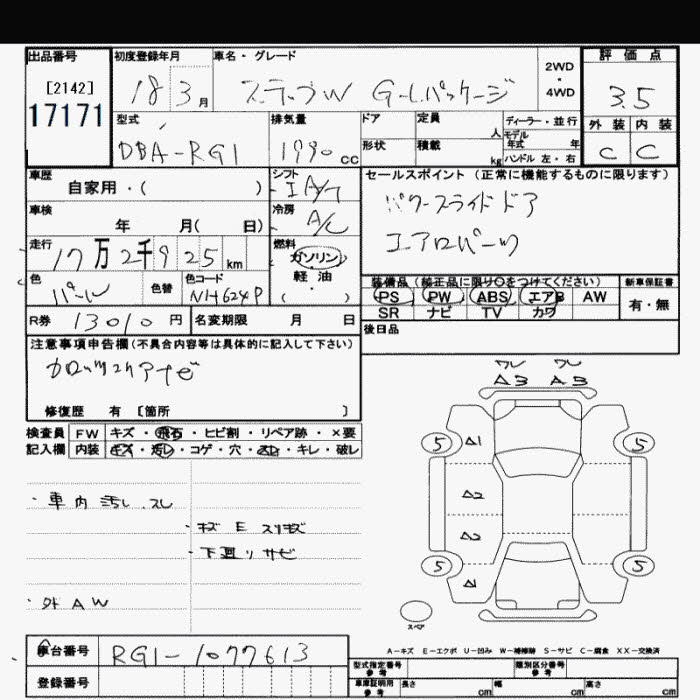 出品番号 初度登録年月 車名・グレード 2WD・4WD 評価点
[2142]
17171 18 3月 ステップW G-Lパッケージ 3.5
型式 排気量 ドア 定員 人 ディーラー・並行 外装 内装
モデル年式 年
DBA-RG1 1990cc 形状 積載 kg ハンドル 左・右 C C
車歴 シフト セールスポイント (正常に機能するものに限ります)
自家用・( ) IA/T パワースライドドア
車検 冷房
年 月( 日) A/C エアロパーツ
走行 燃料
17万2千925km ガソリン
軽油
・
( )
色 色替 色コード 装備品 (純正品に限り○をつけてください) 新車保証書
パール NH624P PS PW ABS エアB AW 有・無
SR ナビ TV カワ
R券 13010円 名変期限 月 日 後日品
注意事項申告欄(不具合内容等は具体的に記入して下さい)
カロッツェリアナビ
修復歴 有 [箇所 ]
検査員 FW キズ・飛石・ヒビ割・リペア跡・×要
記入欄 内装 キズ・汚レ・コゲ・穴・スレ・キレ・破レ
ワレ ワレ
A3 A3
5 A1 5
A2
A2
5 A1 5
・車内汚レ スレ
・キズ E スリキズ
・下回リサビ
・外AW
スペア
A-キズ E-エクボ U-凹み W-補修跡 S-サビ C-腐食 XX-交換済
車台番号 RG1-1077613 型式指定番号 参考 類別区分番号 参考
登録番号 車庫証明用 参考 長さ cm 幅 cm 高さ cm